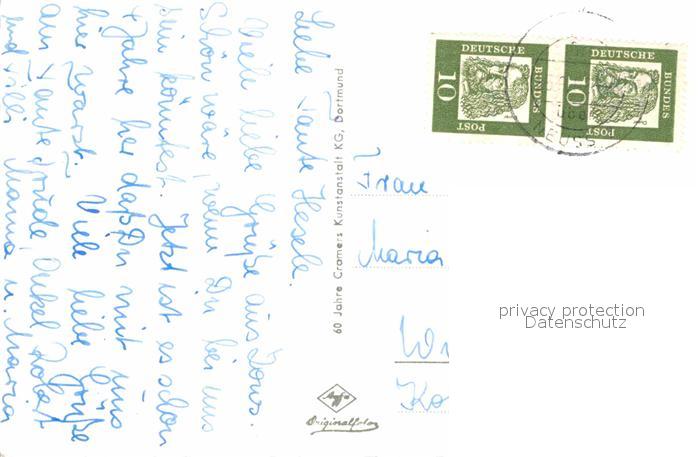 Liebe Tante Hesele.
Viele liebe Grüße aus Zons.
Schön wäre, wenn Du bei uns
sein könntest. Jetzt ist es schon
4 Jahre her daß Du mit uns
hier warst. Viele liebe Grüße
am Tante Trude, Onkel Robert
und Mama u. Maria
60 Jahre Cramers Kunstanstalt KG, Dortmund
DEUTSCHE
BUNDES
POST
10
DEUTSCHE
BUNDES
POST
10
NEUSS
Frau
Maria
Wi
Ko
Agfa
Originalfoto
privacy protection
Datenschutz